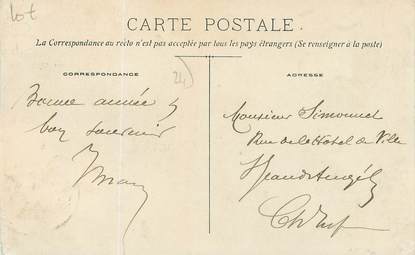 lot
CARTE POSTALE.
La Correspondance au recto n'est pas acceptée par tous les pays étrangers (Se renseigner à la poste)
CORRESPONDANCE
24
ADRESSE
Bonne année &
bon souvenir
Monsieur Simonnet
Rue de l'Hotel de Ville
St Jean d'Angély
Ch Inf